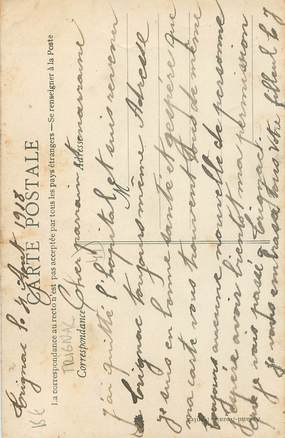 Trignac le 2 Août 1918
CARTE POSTALE
La correspondance au recto n'est pas acceptée par tous les pays étrangers — Se renseigner à la Poste
Correspondance
Adresse
M
TRIGNAC
Cher parrain et marraine
J'ai quitté l'hopital et suis revenu
a Trignac toujours même Adresse
je suis en bonne santé et j'espère que
ma carte vous trouvent tous de même
toujours aucune nouvelle de personne
j'espère avoir bientôt ma permission
que je vous passé Trignac.
je vous embrasse tous votre filleul